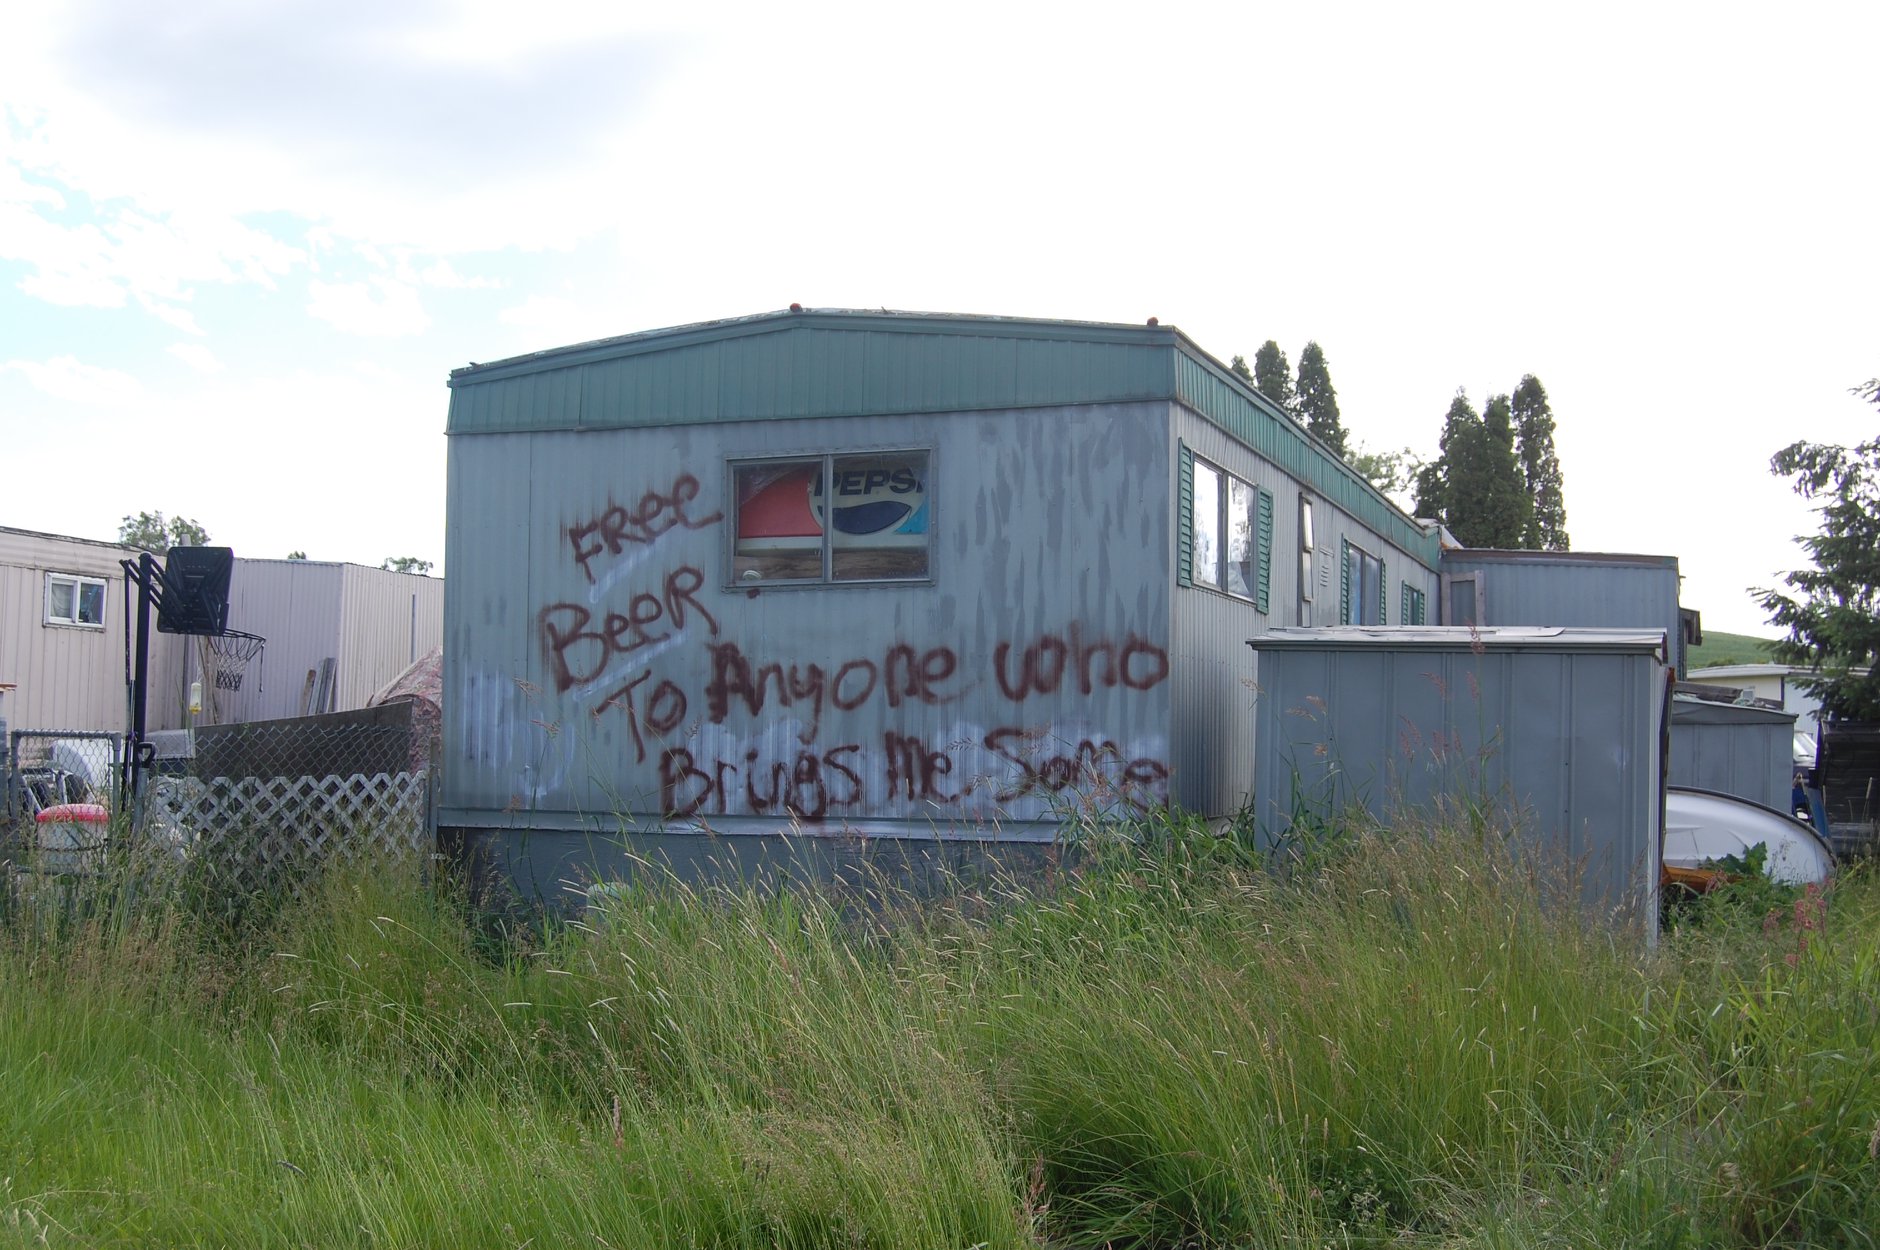 PEPSI
FRee
BeeR
To Anyone who
Brings Me. Some